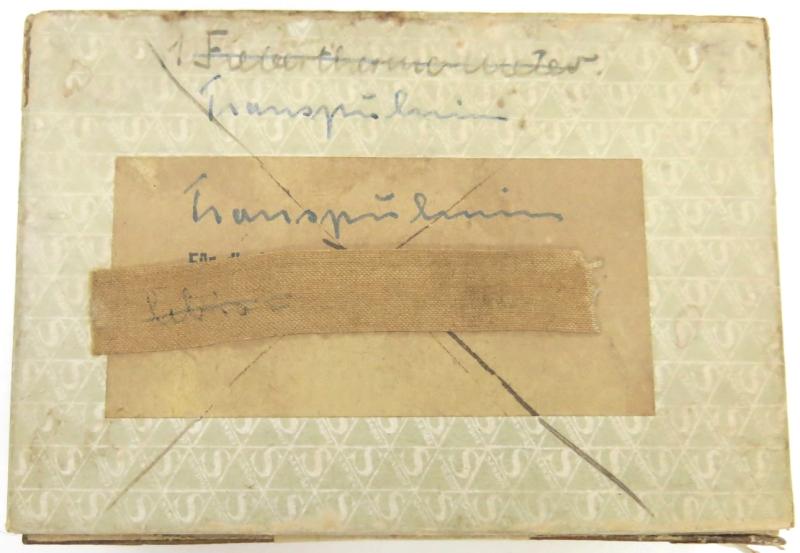 1 Fieberthermometer.
Transpulmin
Transpulmin
Für